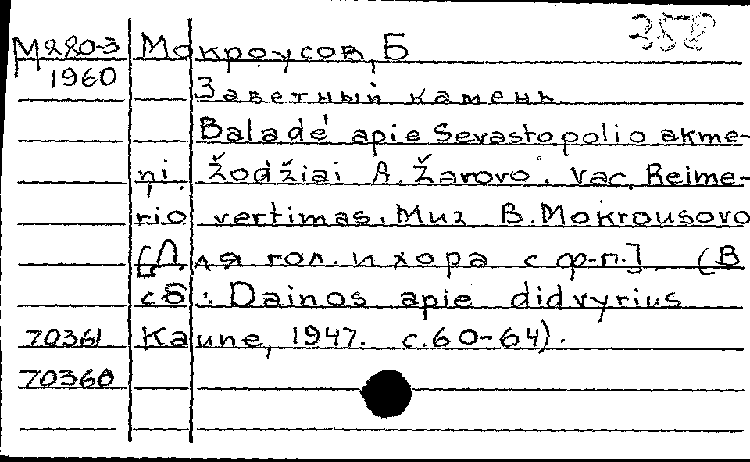 358
М220-3 Мокроусов, Б
1960 Заветный камень
Baladé apie Sevastopolio akme-
nį. Žodžiai A. Žarovo. Vac. Reime-
rio vertimas. Муз В. Mokrousovo
[Для гол. и хора с ф-п.] (В
сб: Dainos apie didvyrius
70361 Kaune, 1947. с.60-64).
70360